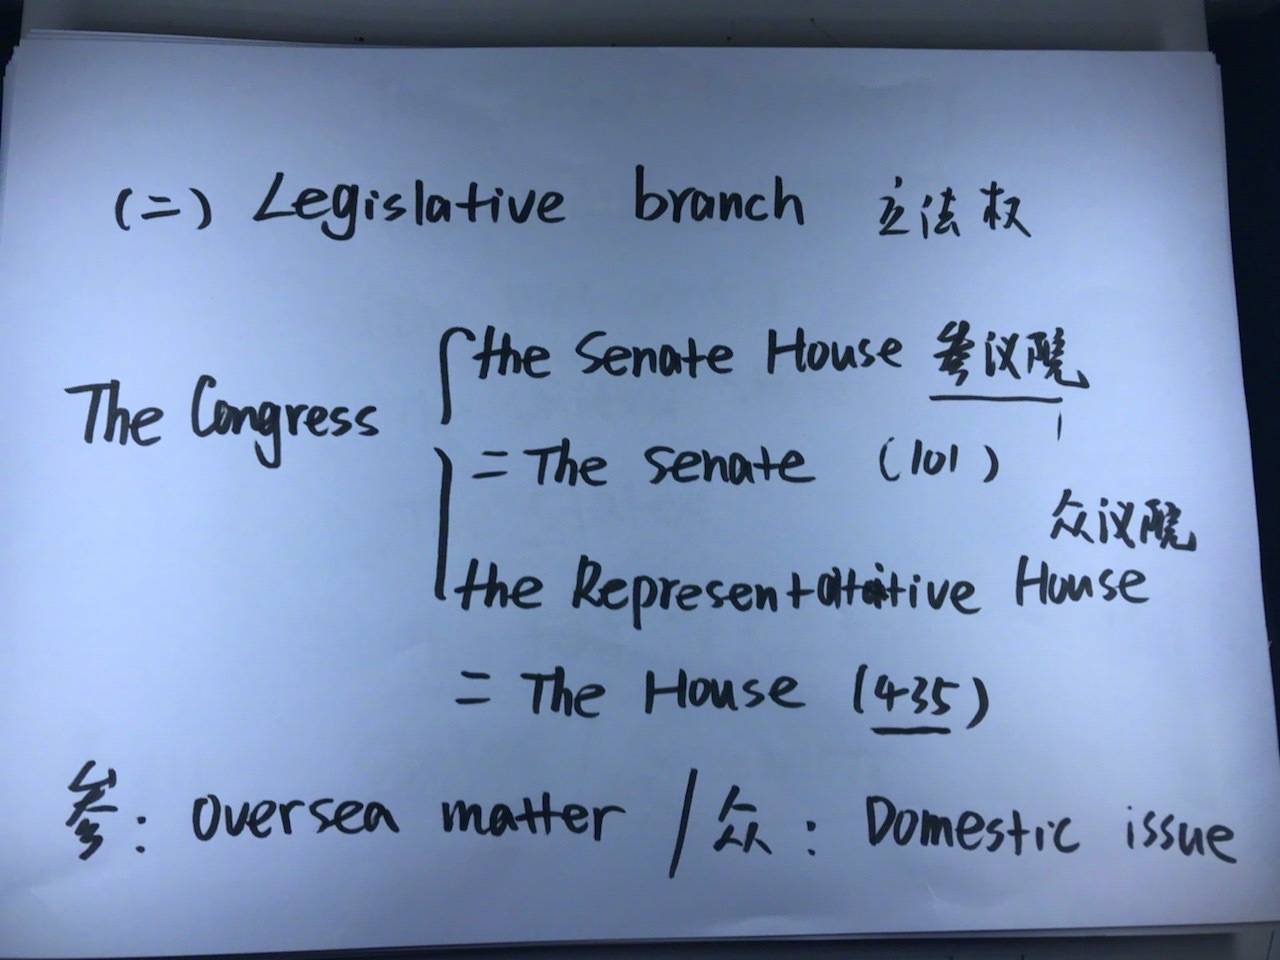 (二) Legislative branch 立法权
the Senate House 参议院
The Congress
= The Senate (101)
众议院
the Representative House
= The House (435)
参: oversea matter / 众: Domestic issue